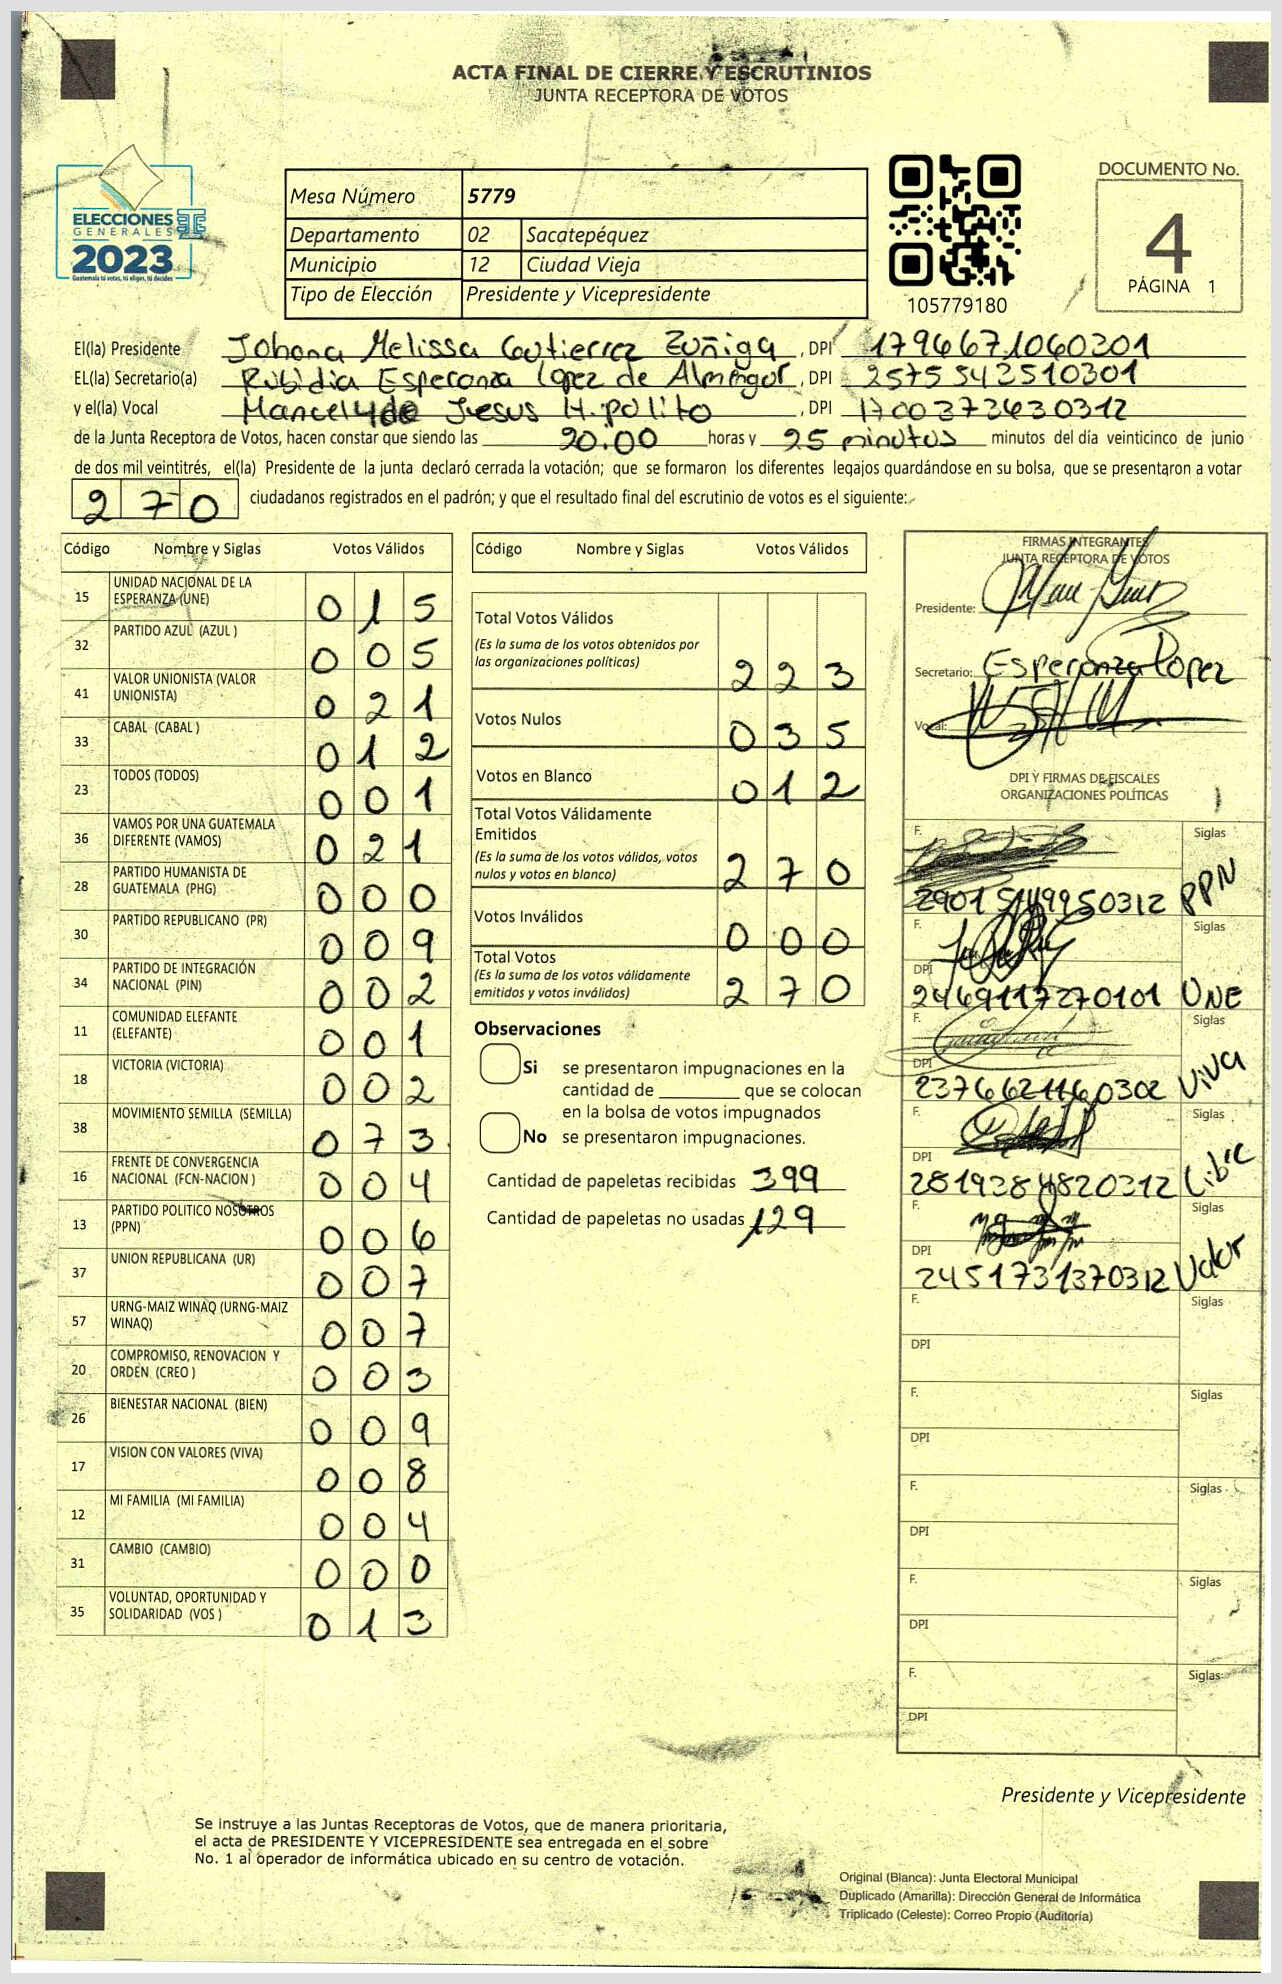 ACTA FINAL DE CIERRE Y ESCRUTINIOS
JUNTA RECEPTORA DE VOTOS
ELECCIONES
GENERALES
2023
Guatemala tú votas, tú eliges, tú decides
Mesa Número 5779
Departamento 02 Sacatepéquez
Municipio 12 Ciudad Vieja
Tipo de Elección Presidente y Vicepresidente
105779180
DOCUMENTO No.
4
PÁGINA 1
El(la) Presidente Johana Melissa Gutierrez Zuñiga, DPI 1796671060301
EL(la) Secretario(a) Rubidia Esperanza Lopez de Almengor, DPI 2575542510301
y el(la) Vocal Jesus Hipolito, DPI 1700372630312
de la Junta Receptora de Votos, hacen constar que siendo las 20:00 horas y 25 minutos minutos del día veinticinco de junio
de dos mil veintitrés, el(la) Presidente de la junta declaró cerrada la votación; que se formaron los diferentes legajos guardándose en su bolsa, que se presentaron a votar
270 ciudadanos registrados en el padrón; y que el resultado final del escrutinio de votos es el siguiente:
Código Nombre y Siglas Votos Válidos
15 UNIDAD NACIONAL DE LA ESPERANZA (UNE) 015
32 PARTIDO AZUL (AZUL ) 005
41 VALOR UNIONISTA (VALOR UNIONISTA) 021
33 CABAL (CABAL ) 012
23 TODOS (TODOS) 001
36 VAMOS POR UNA GUATEMALA DIFERENTE (VAMOS) 021
28 PARTIDO HUMANISTA DE GUATEMALA (PHG) 000
30 PARTIDO REPUBLICANO (PR) 009
34 PARTIDO DE INTEGRACIÓN NACIONAL (PIN) 002
11 COMUNIDAD ELEFANTE (ELEFANTE) 001
18 VICTORIA (VICTORIA) 002
38 MOVIMIENTO SEMILLA (SEMILLA) 073
16 FRENTE DE CONVERGENCIA NACIONAL (FCN-NACION ) 004
13 PARTIDO POLITICO NOSOTROS (PPN) 006
37 UNION REPUBLICANA (UR) 007
57 URNG-MAIZ WINAQ (URNG-MAIZ WINAQ) 007
20 COMPROMISO, RENOVACION Y ORDEN (CREO ) 003
26 BIENESTAR NACIONAL (BIEN) 009
17 VISION CON VALORES (VIVA) 008
12 MI FAMILIA (MI FAMILIA) 004
31 CAMBIO (CAMBIO) 000
35 VOLUNTAD, OPORTUNIDAD Y SOLIDARIDAD (VOS ) 013
Código Nombre y Siglas Votos Válidos
Total Votos Válidos
(Es la suma de los votos obtenidos por
las organizaciones políticas) 223
Votos Nulos 035
Votos en Blanco 012
Total Votos Válidamente
Emitidos
(Es la suma de los votos válidos, votos
nulos y votos en blanco) 270
Votos Inválidos 000
Total Votos
(Es la suma de los votos válidamente
emitidos y votos inválidos) 270
Observaciones
Si se presentaron impugnaciones en la
cantidad de ________ que se colocan
en la bolsa de votos impugnados
No se presentaron impugnaciones.
Cantidad de papeletas recibidas 399
Cantidad de papeletas no usadas 129
FIRMAS INTEGRANTES
JUNTA RECEPTORA DE VOTOS
Presidente:
Secretario: Esperanza Lopez
Vocal:
DPI Y FIRMAS DE FISCALES
ORGANIZACIONES POLÍTICAS
F. Siglas
PPN
F. Siglas
DPI 2469117270101 UNE
F. Siglas
DPI 2376621160302 VIVA
F. Siglas
DPI 2819384820312
F. Siglas
DPI 2451731370312 Valor
F. Siglas
DPI
F. Siglas
DPI
F. Siglas
DPI
F. Siglas
DPI
F. Siglas
DPI
Presidente y Vicepresidente
Se instruye a las Juntas Receptoras de Votos, que de manera prioritaria,
el acta de PRESIDENTE Y VICEPRESIDENTE sea entregada en el sobre
No. 1 al operador de informática ubicado en su centro de votación.
Original (Blanca): Junta Electoral Municipal
Duplicado (Amarilla): Dirección General de Informática
Triplicado (Celeste): Correo Propio (Auditoría)